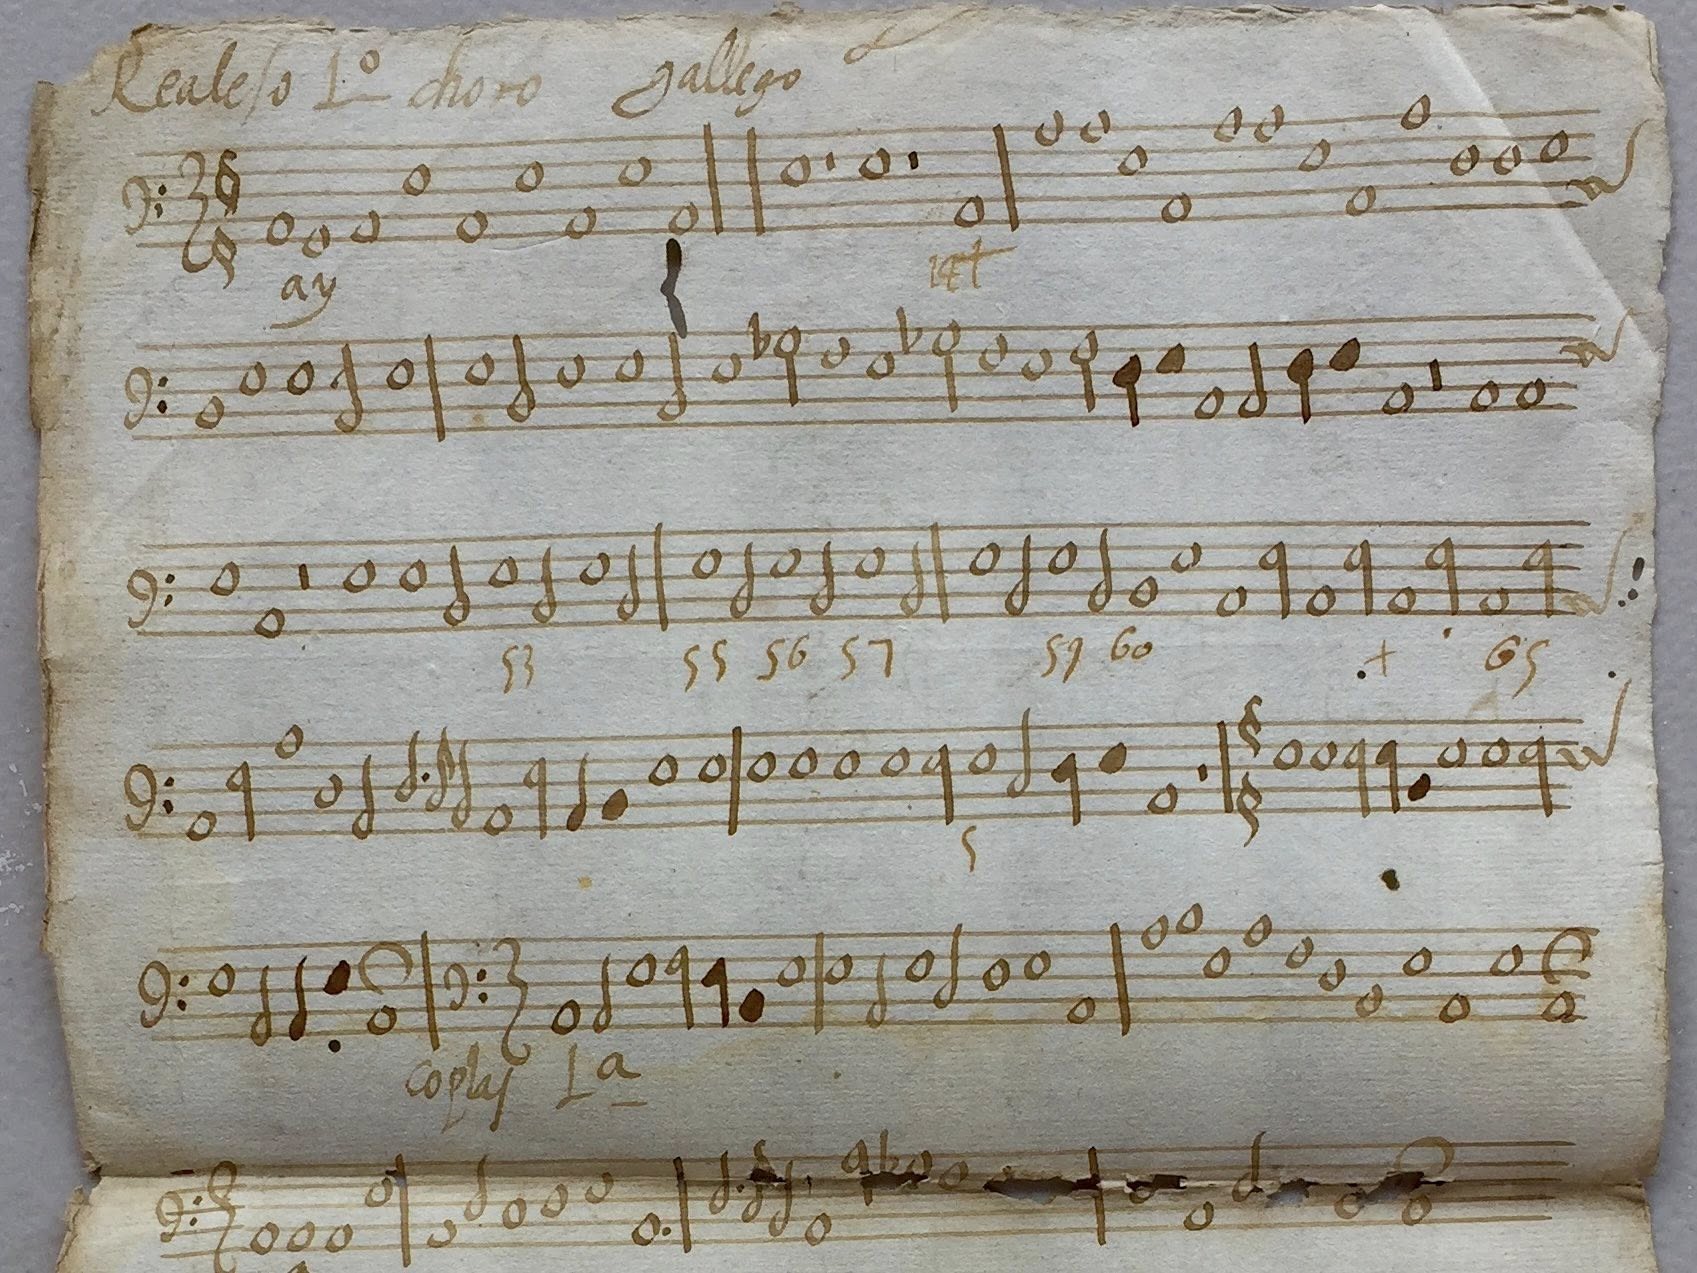 Realejo 1º choro gallego
ay
53 55 56 57 59 60 + 65
5
coplas 1ª